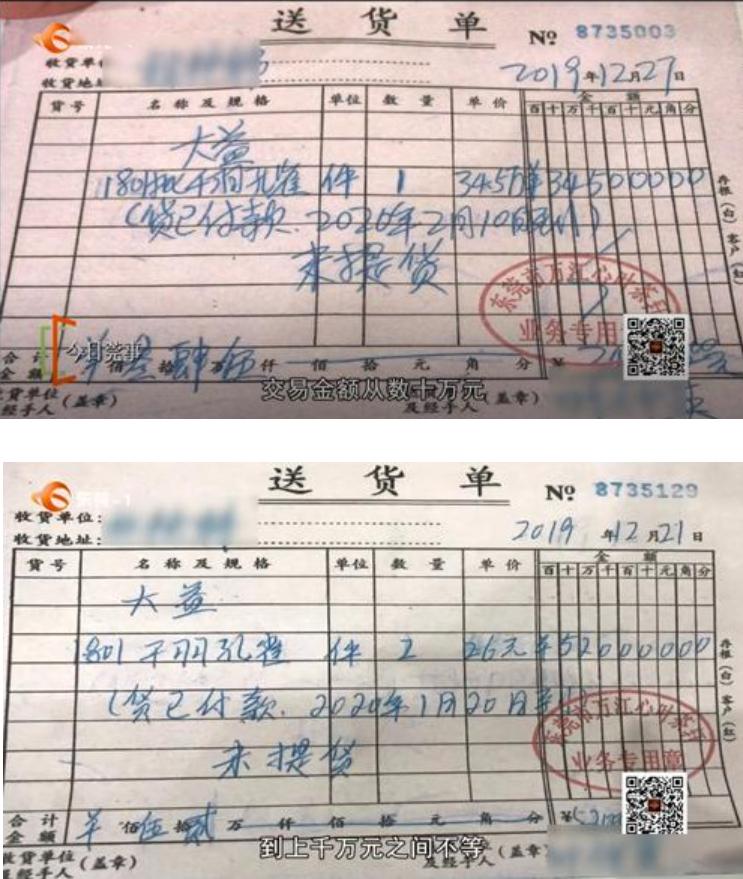 送货单 № 8735003
收货单位
收货地址
2019年12月27日
货号 名称及规格 单位 数量 单价 金额
百十万千百十元角分
大益
1801批千羽孔雀 件 1 34.5万 ¥34500000
(货已付款.2020年2月10日
未提货
存根(白) 客户(红)
东莞市万江心叶茶
业务专用
今日莞事
合计金额 叁 佰 拾 肆 万 伍 仟 佰 拾 元 角 分 ¥
交易金额从数十万元
货单位及经手人(盖章)
及经手人(盖章)
送货单 № 8735129
收货单位:
收货地址:
2019年12月21日
货号 名称及规格 单位 数量 单价 金额
百十万千百十元角分
大益
1801千羽孔雀 件 2 26元 ¥52000000
(货已付款.2020年1月20日
未提货
存根(白) 客户(红)
东莞市万江心叶茶
业务专用章
合计金额 佰 伍 拾 贰 万 仟 佰 拾 元 角 分 ¥
到上千万元之间不等
收货单位及经手人(盖章)
及经手人(盖章)